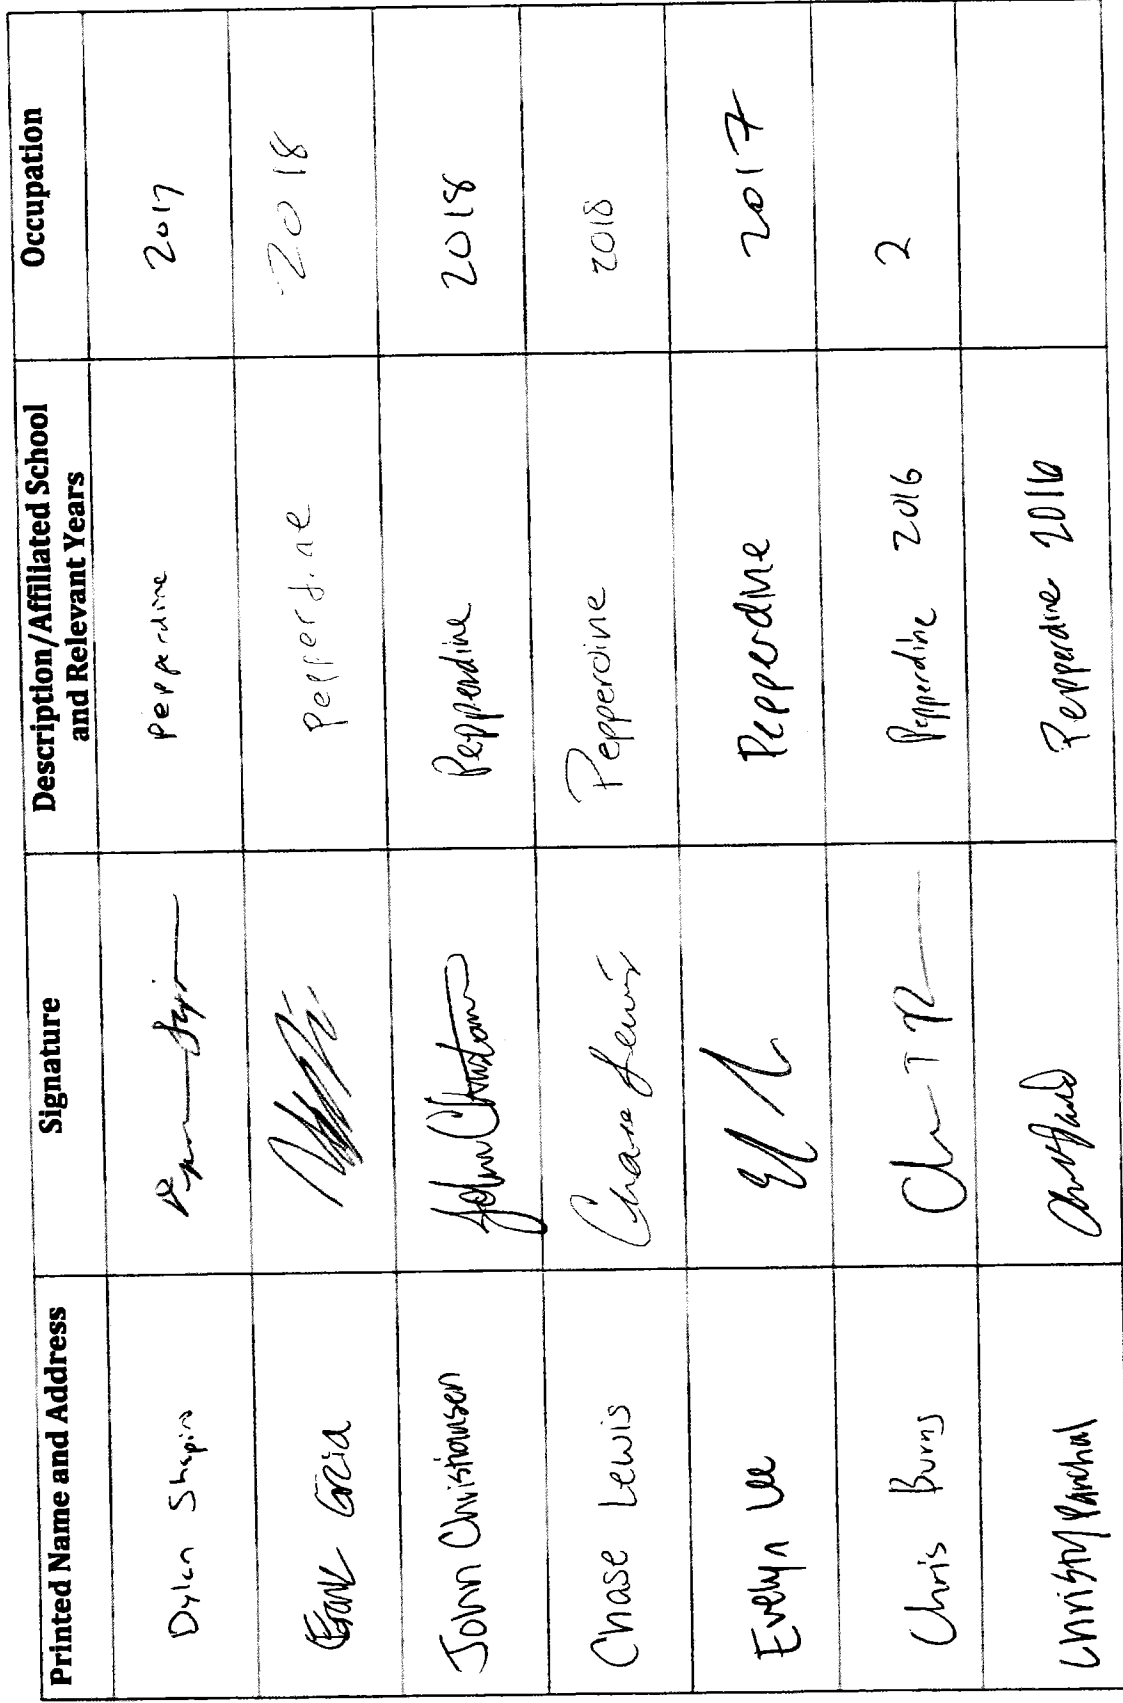 Printed Name and Address Signature Description/Affiliated School and Relevant Years Occupation
Dylan Shapiro Pepperdine 2017
Pepperdine 2018
John Christiansen John Christiansen Pepperdine 2018
Chase Lewis Chase Lewis Pepperdine 2018
Evelyn Lee Pepperdine 2017
Chris Burns Pepperdine 2016 2
Christy Panchal Pepperdine 2016